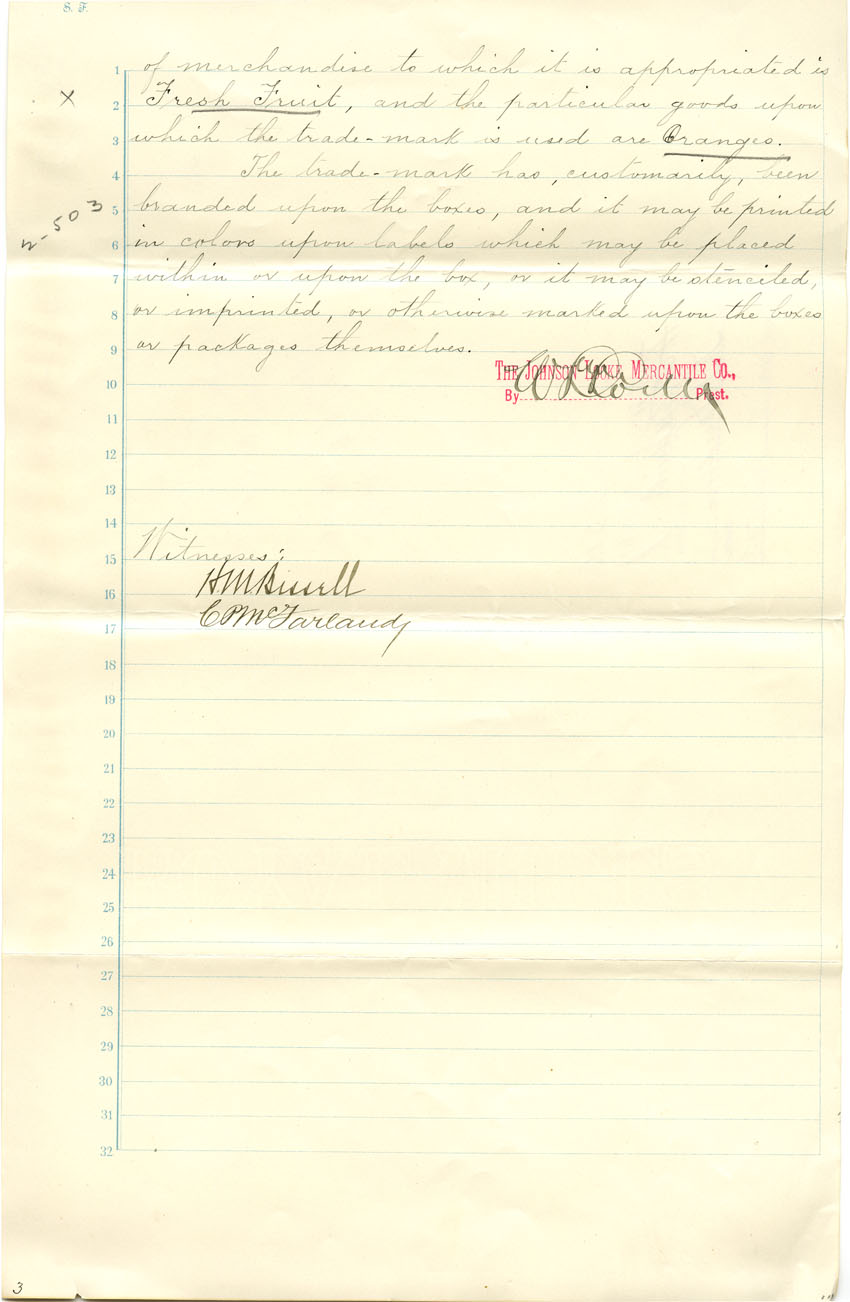 S. F.
1 of merchandise to which it is appropriated is
X
2 Fresh Fruit, and the particular goods upon
3 which the trade-mark is used are Oranges.
4 The trade-mark has, customarily, been
2-503
5 branded upon the boxes, and it may be printed
6 in colors upon labels which may be placed
7 within or upon the box, or it may be stenciled,
8 or imprinted, or otherwise marked upon the boxes
9 or packages themselves.
THE JOHNSON-LOCKE MERCANTILE CO.,
10 By Prest.
11
12
13
14
15 Witnesses:
16 H M Bissell
17 C P McFarland
18
19
20
21
22
23
24
25
26
27
28
29
30
31
32
3